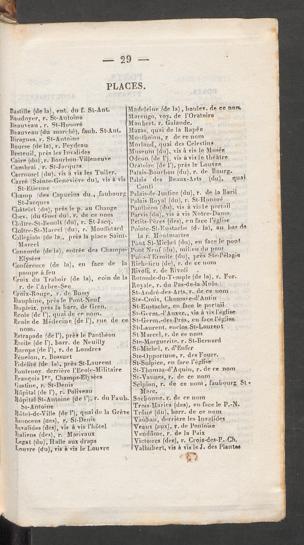 — 29 —
PLACES.
Bastille (de la), ent. du f. St-Ant.
Baudoyer, r. St-Antoine
Beauveau, r. St-Honoré
Beauveau (du marché), faub. St-Ant.
Biragues, r. St-Antoine
Bourse (de la), r. Feydeau
Breteuil, près les Invalides
Caire (du), r. Bourbon-Villeneuve
Cambrai, r. St-Jacques
Carrousel (du), vis à vis les Tuiler.
Carré (Sainte-Geneviève du), vis à vis
St-Etienne
Champ (des Capucins du), faubourg
St-Jacques
Châtelet (du), près le p. au Change
Chev. (du Guet) du r. de ce nom
Cloître-St-Benoît (du), r. St-Jacq.
Cloître-St-Marcel (du), r. Mouffetard
Collégiale (de la), près la place Saint-
Marcel
Concorde (de la), entrée des Champs-
Elysées
Conférence (de la), en face de la
pompe à feu
Croix du Trahoir (de la), coin de la
r. de l'Arbre-Sec
Croix-Rouge, r. du Four
Dauphine, près le Pont-Neuf
Dupleix, près la barr. de Gren.
Ecole (de l'), quai de ce nom.
Ecole de Médecine (de l'), rue de ce
nom.
Estrapade (de l'), près le Panthéon
Etoile (de l'), barr. de Neuilly
Europe (de l'), r. de Londres
Fénelon, r. Bossuet
Fidélité (de la), près St-Laurent
Fontenoy, derrière l'Ecole-Militaire
François Ier, Champs-Elysées
Gastine, r. St-Denis
Hôpital (de l'), r. Poliveau
Hôpital St-Antoine (de l'), r. du Faub.
St-Antoine
Hôtel-de-Ville (de l'), quai de la Grève
Innocens (des), r. St-Denis
Invalides (des), vis à vis l'hôtel
Italiens (des), r. Marivaux
Legat (du), Halle aux draps
Louvre (du), vis à vis le Louvre
Madeleine (de la), boulev. de ce nom
Marengo, voy. de l'Oratoire
Maubert, r. Galande.
Mazas, quai de la Rapée
Montholon, r. de ce nom
Morland, quai des Celestins
Museum (du), vis à vis le Musée
Odéon (de l'), vis à vis le théâtre
Oratoire (de l'), près le Louvre
Palais-Bourbon (du), r. de Bourg.
Palais des Beaux-Arts (du), quai
Conti
Palais-de-Justice (du), r. de la Baril
Palais Royal (du), r. St-Honoré
Panthéon (du), vis à vis le portail
Parvis (du), vis à vis Notre-Dame
Petits-Pères (des), en face l'église
Pointe-St-Eustache (de la), au bas de
la r. Montmartre
Pont St-Michel (du), en face le pont
Pont Neuf (du), milieu du pont
Puits-l'Ermite (du), près Ste-Pélagie
Richelieu (de), r. de ce nom
Rivoli, r. de Rivoli
Rotonde-du-Temple (de la), r. For.
Royale, r. du Pas-de-la-Mule
St-André-des-Arts, r. de ce nom
Ste-Croix, Chaussée-d'Antin
St-Eustache, en face le portail
St-Germ.-l'Auxer., vis à vis l'église
St-Germ.-des-Prés, en face l'église
St-Laurent, enclos St-Laurent
St-Marcel, r. de ce nom
Ste-Marguerite, r. St-Bernard
St-Michel, r. d'Enfer
Ste-Opportune, r. des Fourr.
St-Sulpice, en face l'église
St-Thomas-d'Aquin, r. de ce nom
St-Vannes, r. de ce nom
Scipion, r. de ce nom, faubourg St-
Marc.
Sorbonne, r. de ce nom
Trois-Maries (des), en face le P.-N.
Trône (du), barr. de ce nom
Vauban, derrière les Invalides
Veaux (aux), r. de Pontoise
Vendôme, r. de la Paix
Victoires (des), r. Croix-des-P. Ch.
Valhubert, vis à vis le J. des Plantes